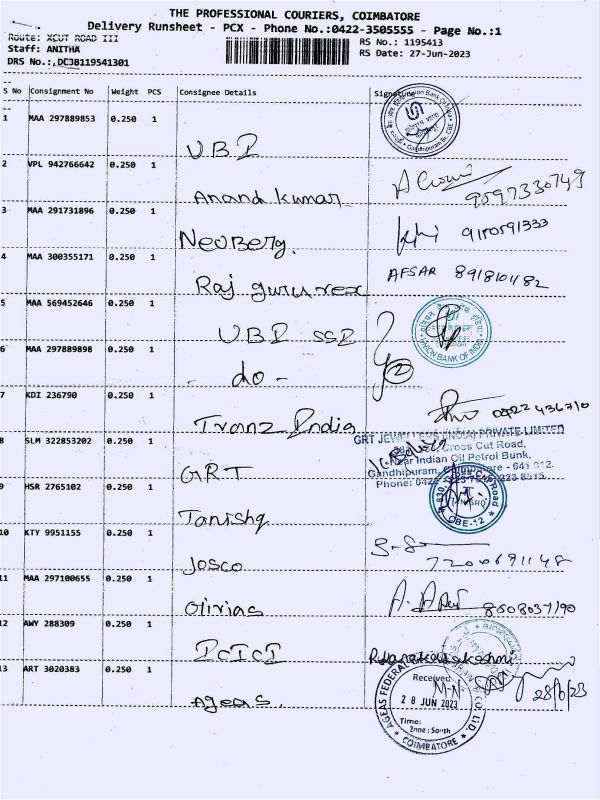 THE PROFESSIONAL COURIERS, COIMBATORE
Delivery Runsheet - PCX - Phone No.:0422-3505555 - Page No.:1
Route: XCUT ROAD III
RS No.: 1195413
Staff: ANITHA
RS Date: 27-Jun-2023
DRS No.:,DC3B119541301
S No Consignment No Weight PCS Consignee Details Signature
1 MAA 297889853 0.250 1 UBI
2 VPL 942766642 0.250 1 Anand kumar 9597330749
3 MAA 291731896 0.250 1 Neuberg. 9150591333
4 MAA 300355171 0.250 1 Raj gururex AFSAR 891810482
5 MAA 569452646 0.250 1 UBI SSI UNION BANK OF INDIA
6 MAA 297889898 0.250 1 - do -
7 KDI 236790 0.250 1 Tranz India 0422 436710
GRT JEWELLERS (INDIA) PRIVATE LIMITED
Cross Cut Road,
Near Indian Oil Petrol Bunk,
Gandhipuram, Coimbatore - 641 012.
8 SLM 322853202 0.250 1 GRT
9 HSR 2765102 0.250 1 Tanishq CBE-12
10 KTY 9951155 0.250 1 Josco 7200691148
11 MAA 297100655 0.250 1 Olivias 8608037190
12 AWY 288309 0.250 1 ICICI
13 ART 3020383 0.250 1 Ageas. 28/6/23
AGEAS FEDERAL CO. LTD.
Received
28 JUN 2023
Time:
Zone: South
COIMBATORE